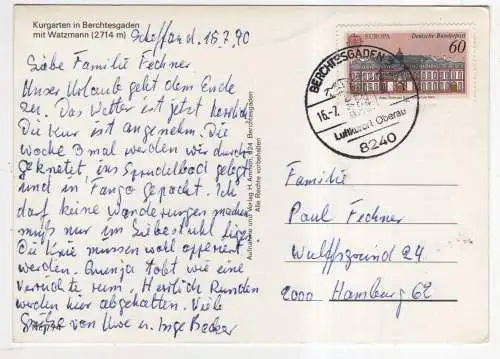 Kurgarten in Berchtesgaden
mit Watzmann (2714 m)
15.7.90
Liebe Familie Fechner
Unser Urlaub geht dem Ende
zu. Das Wetter ist jetzt herrlich
Die Kur ist angenehm. Die
Woche 3 mal werden wir durch
geknetet ins Sprudelbad gelegt
und in Fango gepackt. Ich
darf keine Wanderungen machen
muß nur im Liebestuhl
Die Knie müssen wohl operiert
werden. tobt wie eine
Verrückte rum. Herrlich Runden
werden hier abgehalten. Viele
Grüße von Uwe u. Inge Becker
Aufnahme und Verlag H. Ammon, 8124 Berchtesgaden
Alle Rechte vorbehalten
EUROPA Deutsche Bundespost
60
BERCHTESGADEN
16.-7.
Luftkurort Oberau
8240
Familie
Paul Fechner
24
2000 Hamburg 62